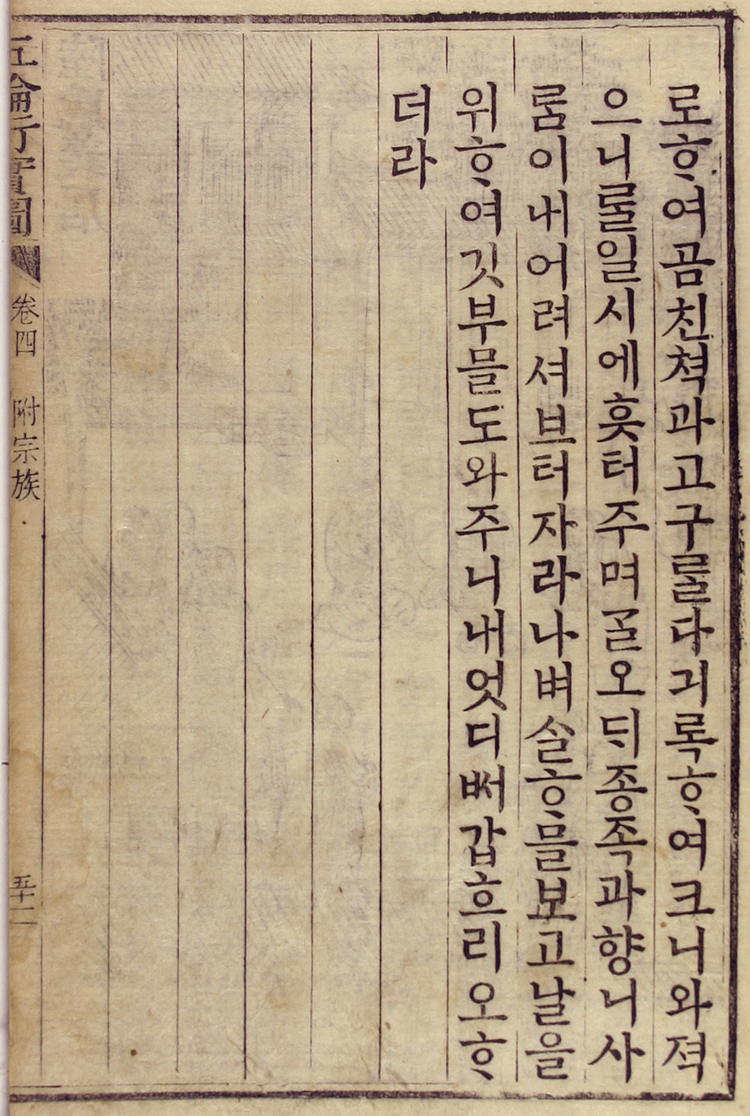 로ᄒᆞ여곰친쳑과고구ᄅᆞᆯ다긔록ᄒᆞ여크니와젹
으니ᄅᆞᆯ일시에흣터주며ᄀᆞᆯ오ᄃᆡ종족과향니사
ᄅᆞᆷ이내어려셔브터자라나벼ᄉᆞᆯᄒᆞ믈보고날을
위ᄒᆞ여깃부믈도와주니내엇디ᄡᅥ갑흐리오ᄒᆞ
더라
五倫行實圖 卷四 附宗族 五十二